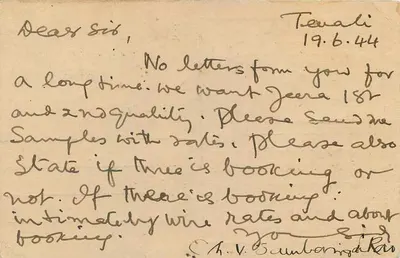 Tenali
19.6.44
Dear Sir,
No letters form you for
a long time. we want Jeera 1st
and 2nd quality. Please send me
Samples with rates, please also
State if there is booking or
not. If there is booking
intimate by wire rates and about
booking.